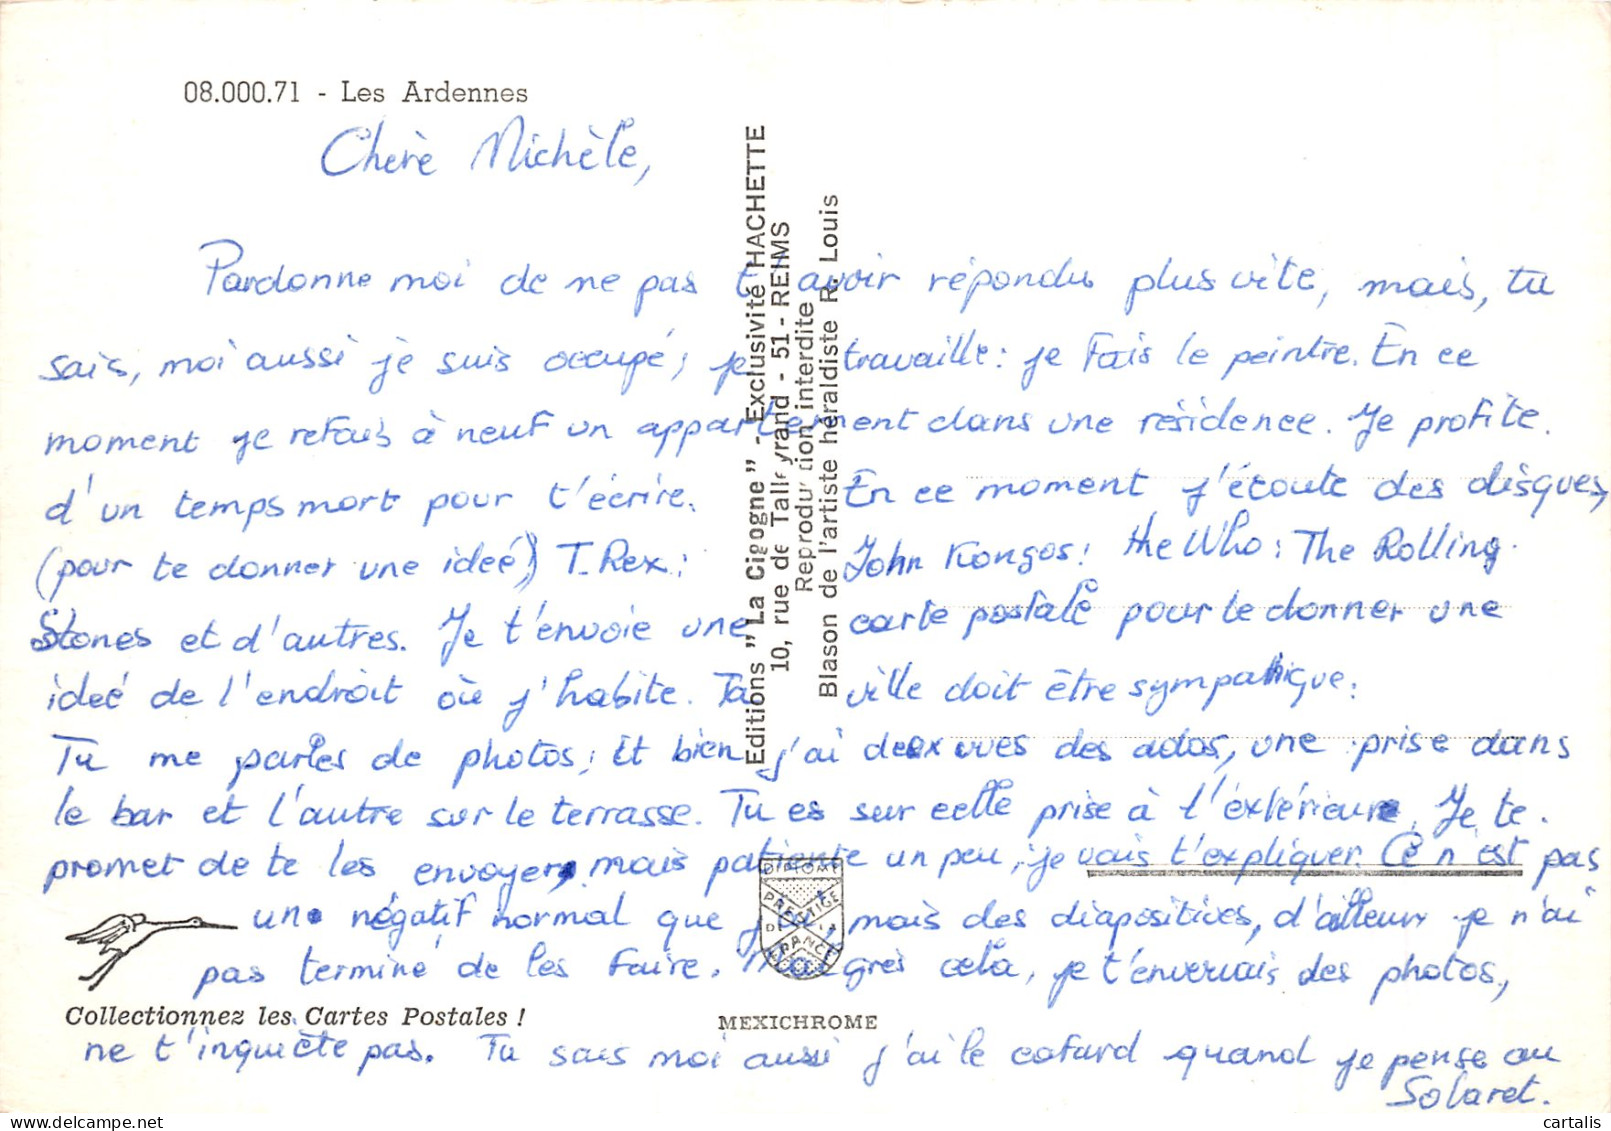 08.000.71 - Les Ardennes
Chère Michèle,
Pardonne moi de ne pas t'avoir répondu plus vite, mais, tu
sais, moi aussi je suis occupé, je travaille : je fais le peintre. En ce
moment je refais à neuf un appartement dans une résidence. Je profite.
d'un temps mort pour t'écrire. En ce moment j'écoute des disques,
(pour te donner une ideé) T. Rex : John Kongos ! the Who : The Rolling.
Stones et d'autres. Je t'envoie une carte postale pour te donner une
ideé de l'endroit où j'habite. Ta ville doit être sympathique :
Tu me parles de photos ; Et bien j'ai deux vues des ados, une prise dans
le bar et l'autre sur le terrasse. Tu es sur celle prise à l'extérieure. Je te.
promet de te les envoyer, mais patiente un peu, je vais t'expliquer. Ce n'est pas
un négatif normal que j'ai, mais des diapositives, d'ailleurs je n'ai
pas terminé de les faire. Malgrès cela, je t'enverrais des photos,
ne t'inquiète pas. Tu sais moi aussi j'ai le cafard quand je pense au
Solaret.
Editions "La Cigogne" - Exclusivité HACHETTE
10, rue de Talleyrand - 51 - REIMS
Reproduction interdite
Blason de l'artiste héraldiste R. Louis
DIPLOME
PRESTIGE
DE LA
FRANCE
Collectionnez les Cartes Postales !
MEXICHROME
cartalis